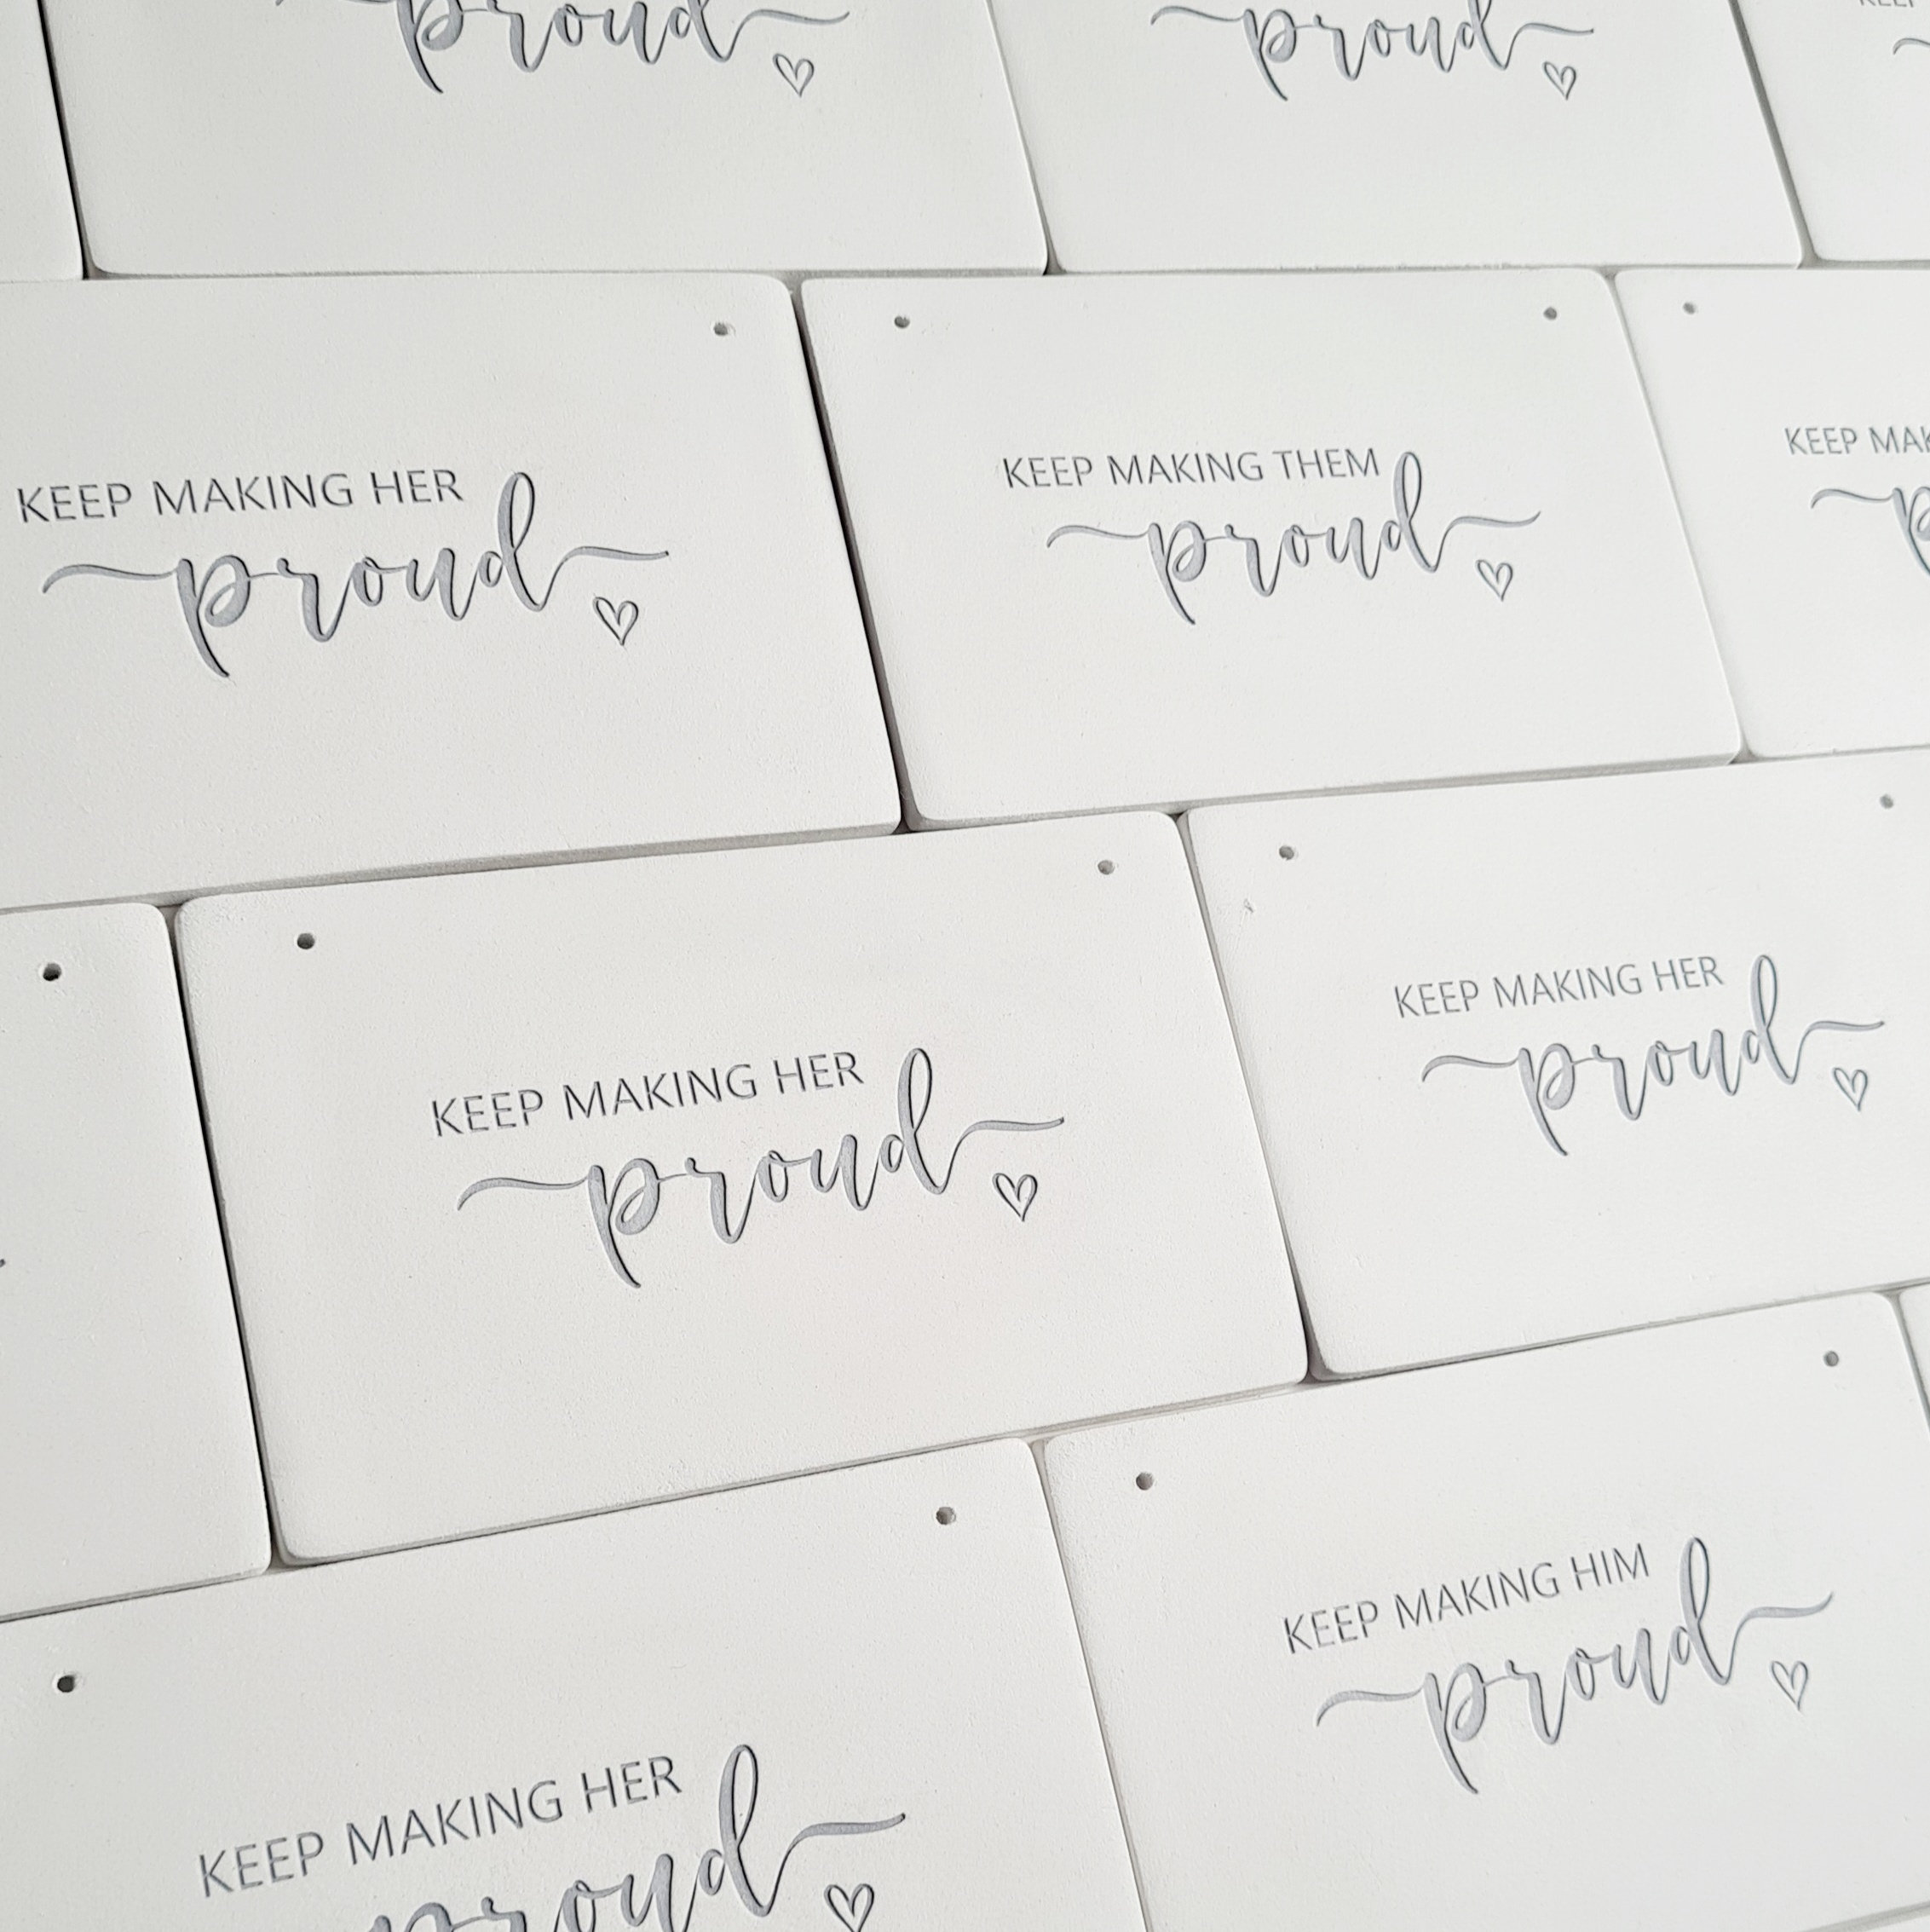 proud
proud
KEEP
KEEP MAKING HER
proud
KEEP MAKING THEM
proud
KEEP
KEEP MAKING HER
proud
KEEP MAKING HER
proud
KEEP MAKING HER
proud
KEEP MAKING HIM
proud